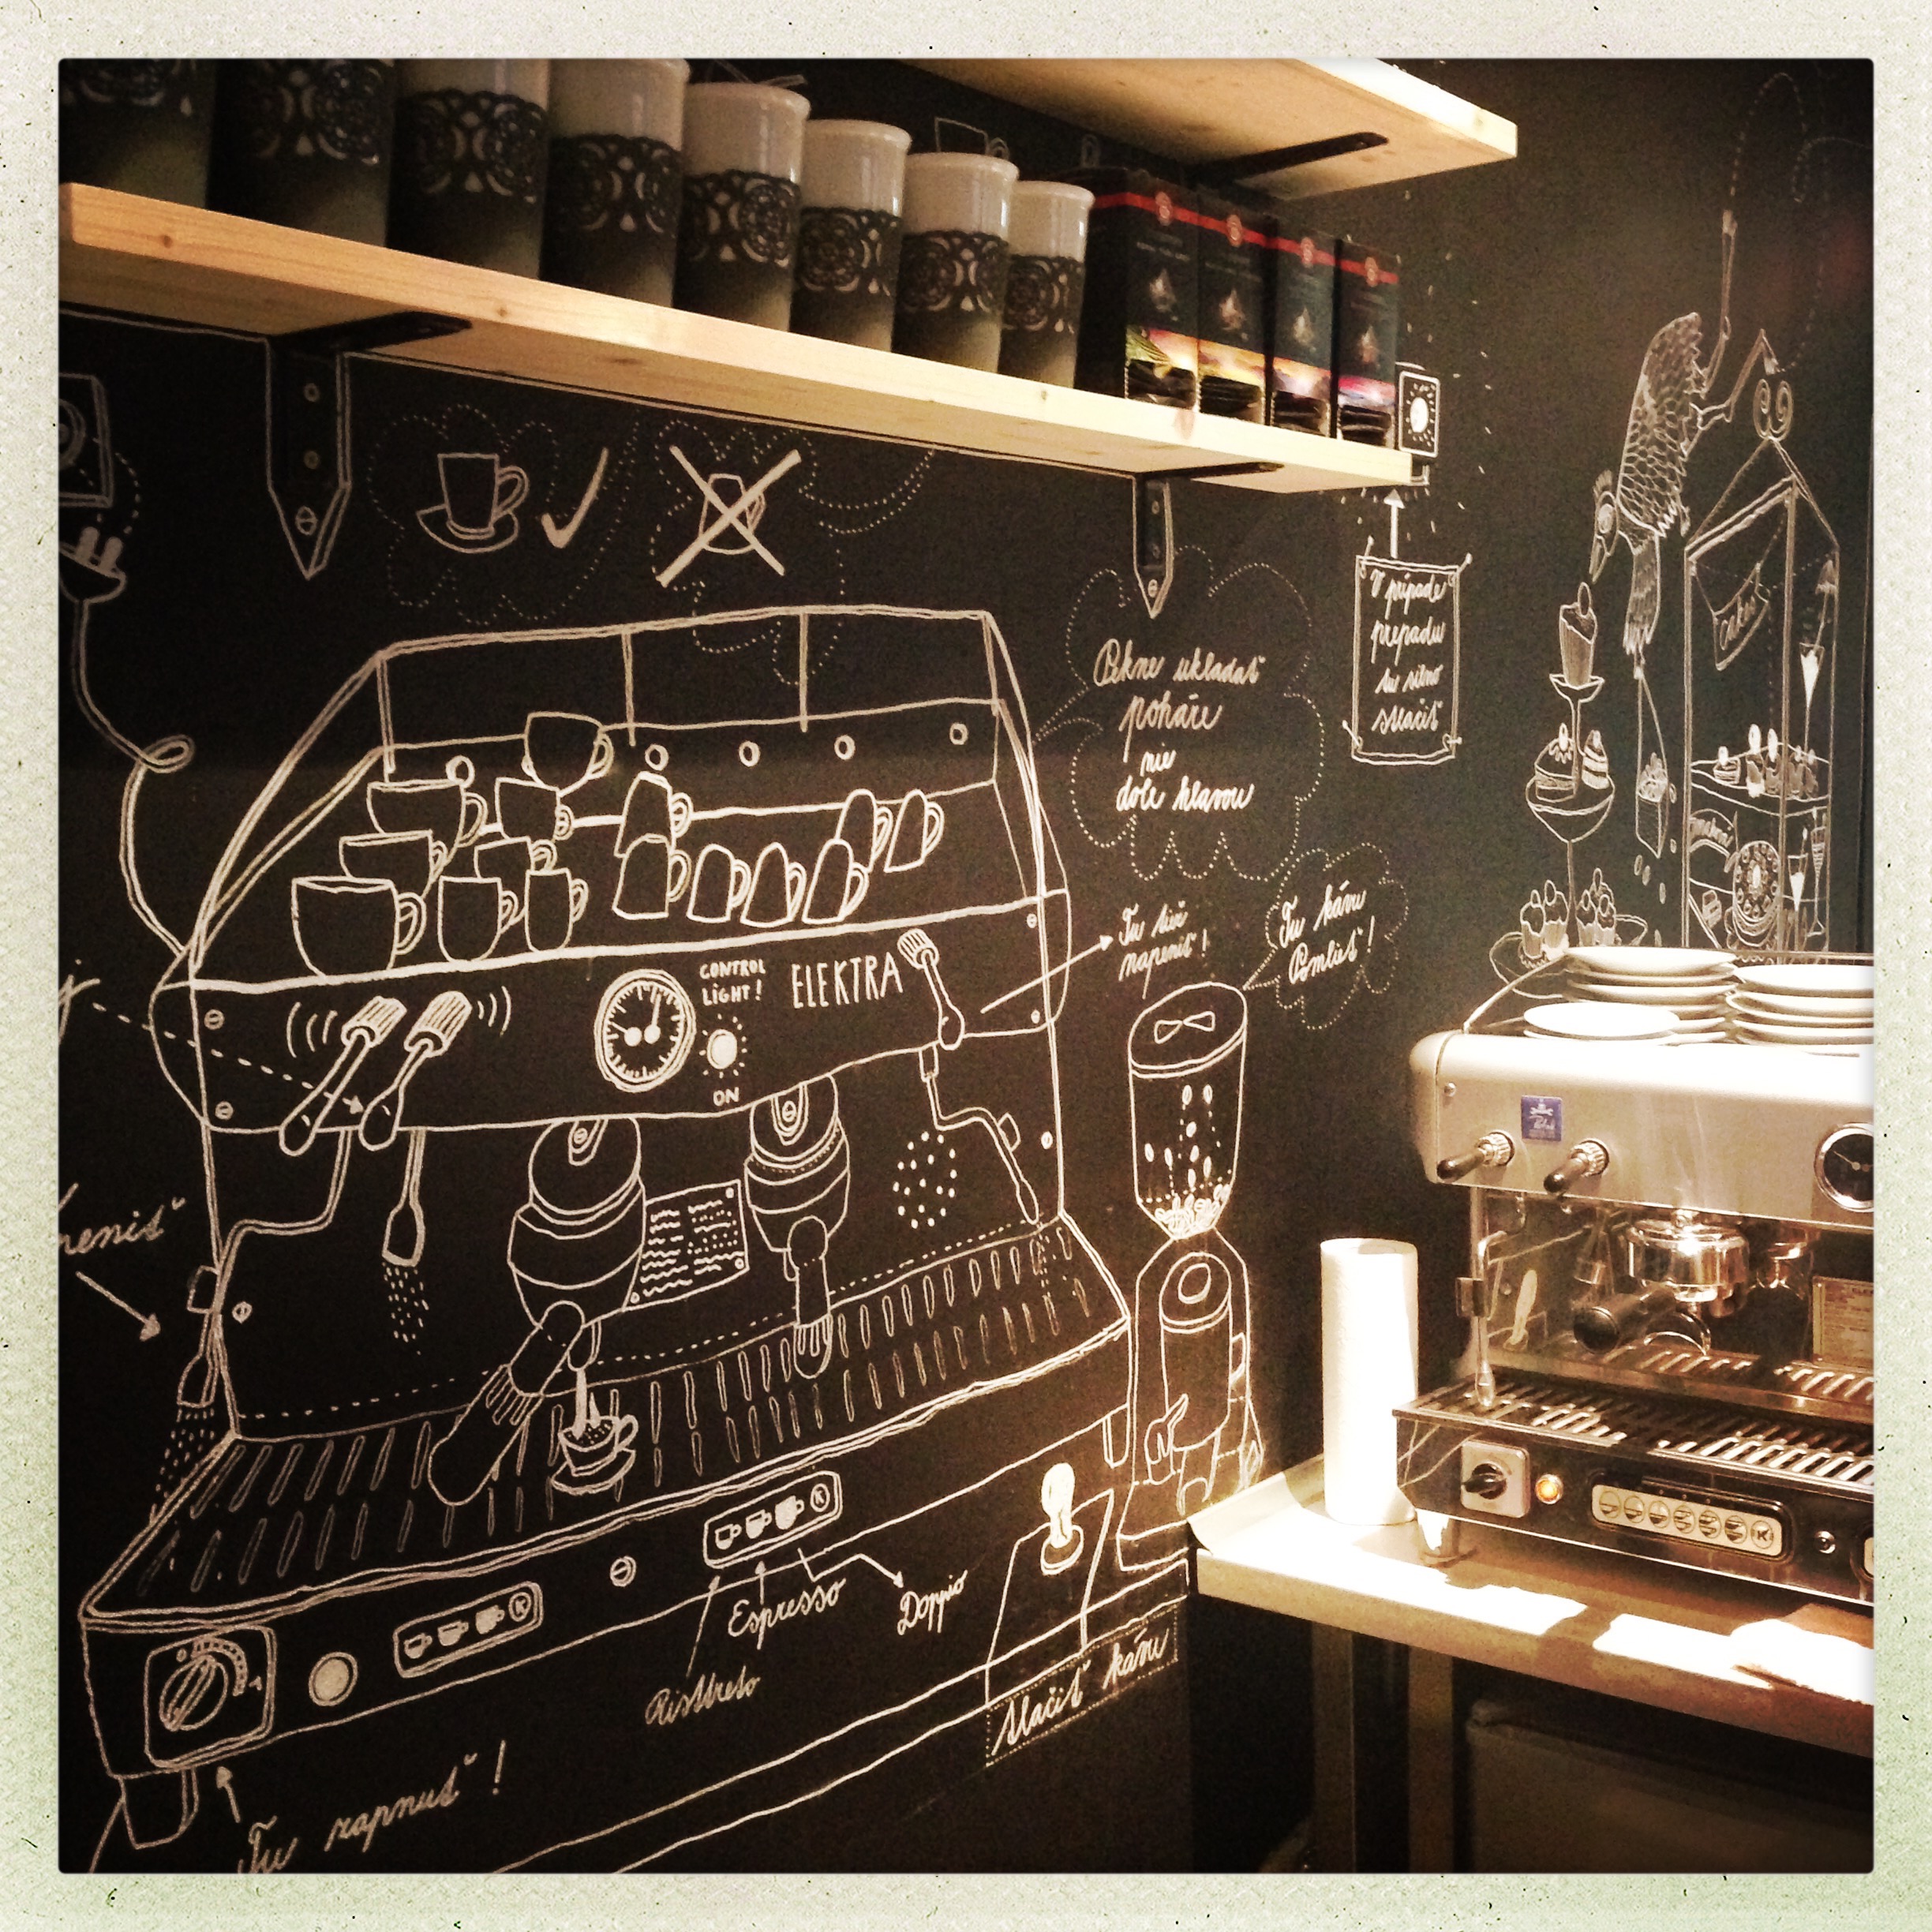 V prípade
prepadu
tu silno
stlačiť
cakes
Pekne ukladať
poháre
nie
dole hlavou
Tu kávu
Pomlieť!
Tu tiež
napeniť!
CONTROL
LIGHT!
ELEKTRA
ON
peniť
K
K
Espresso
Doppio
Risttreto
stlačiť kávu
Tu zapnuť!
K